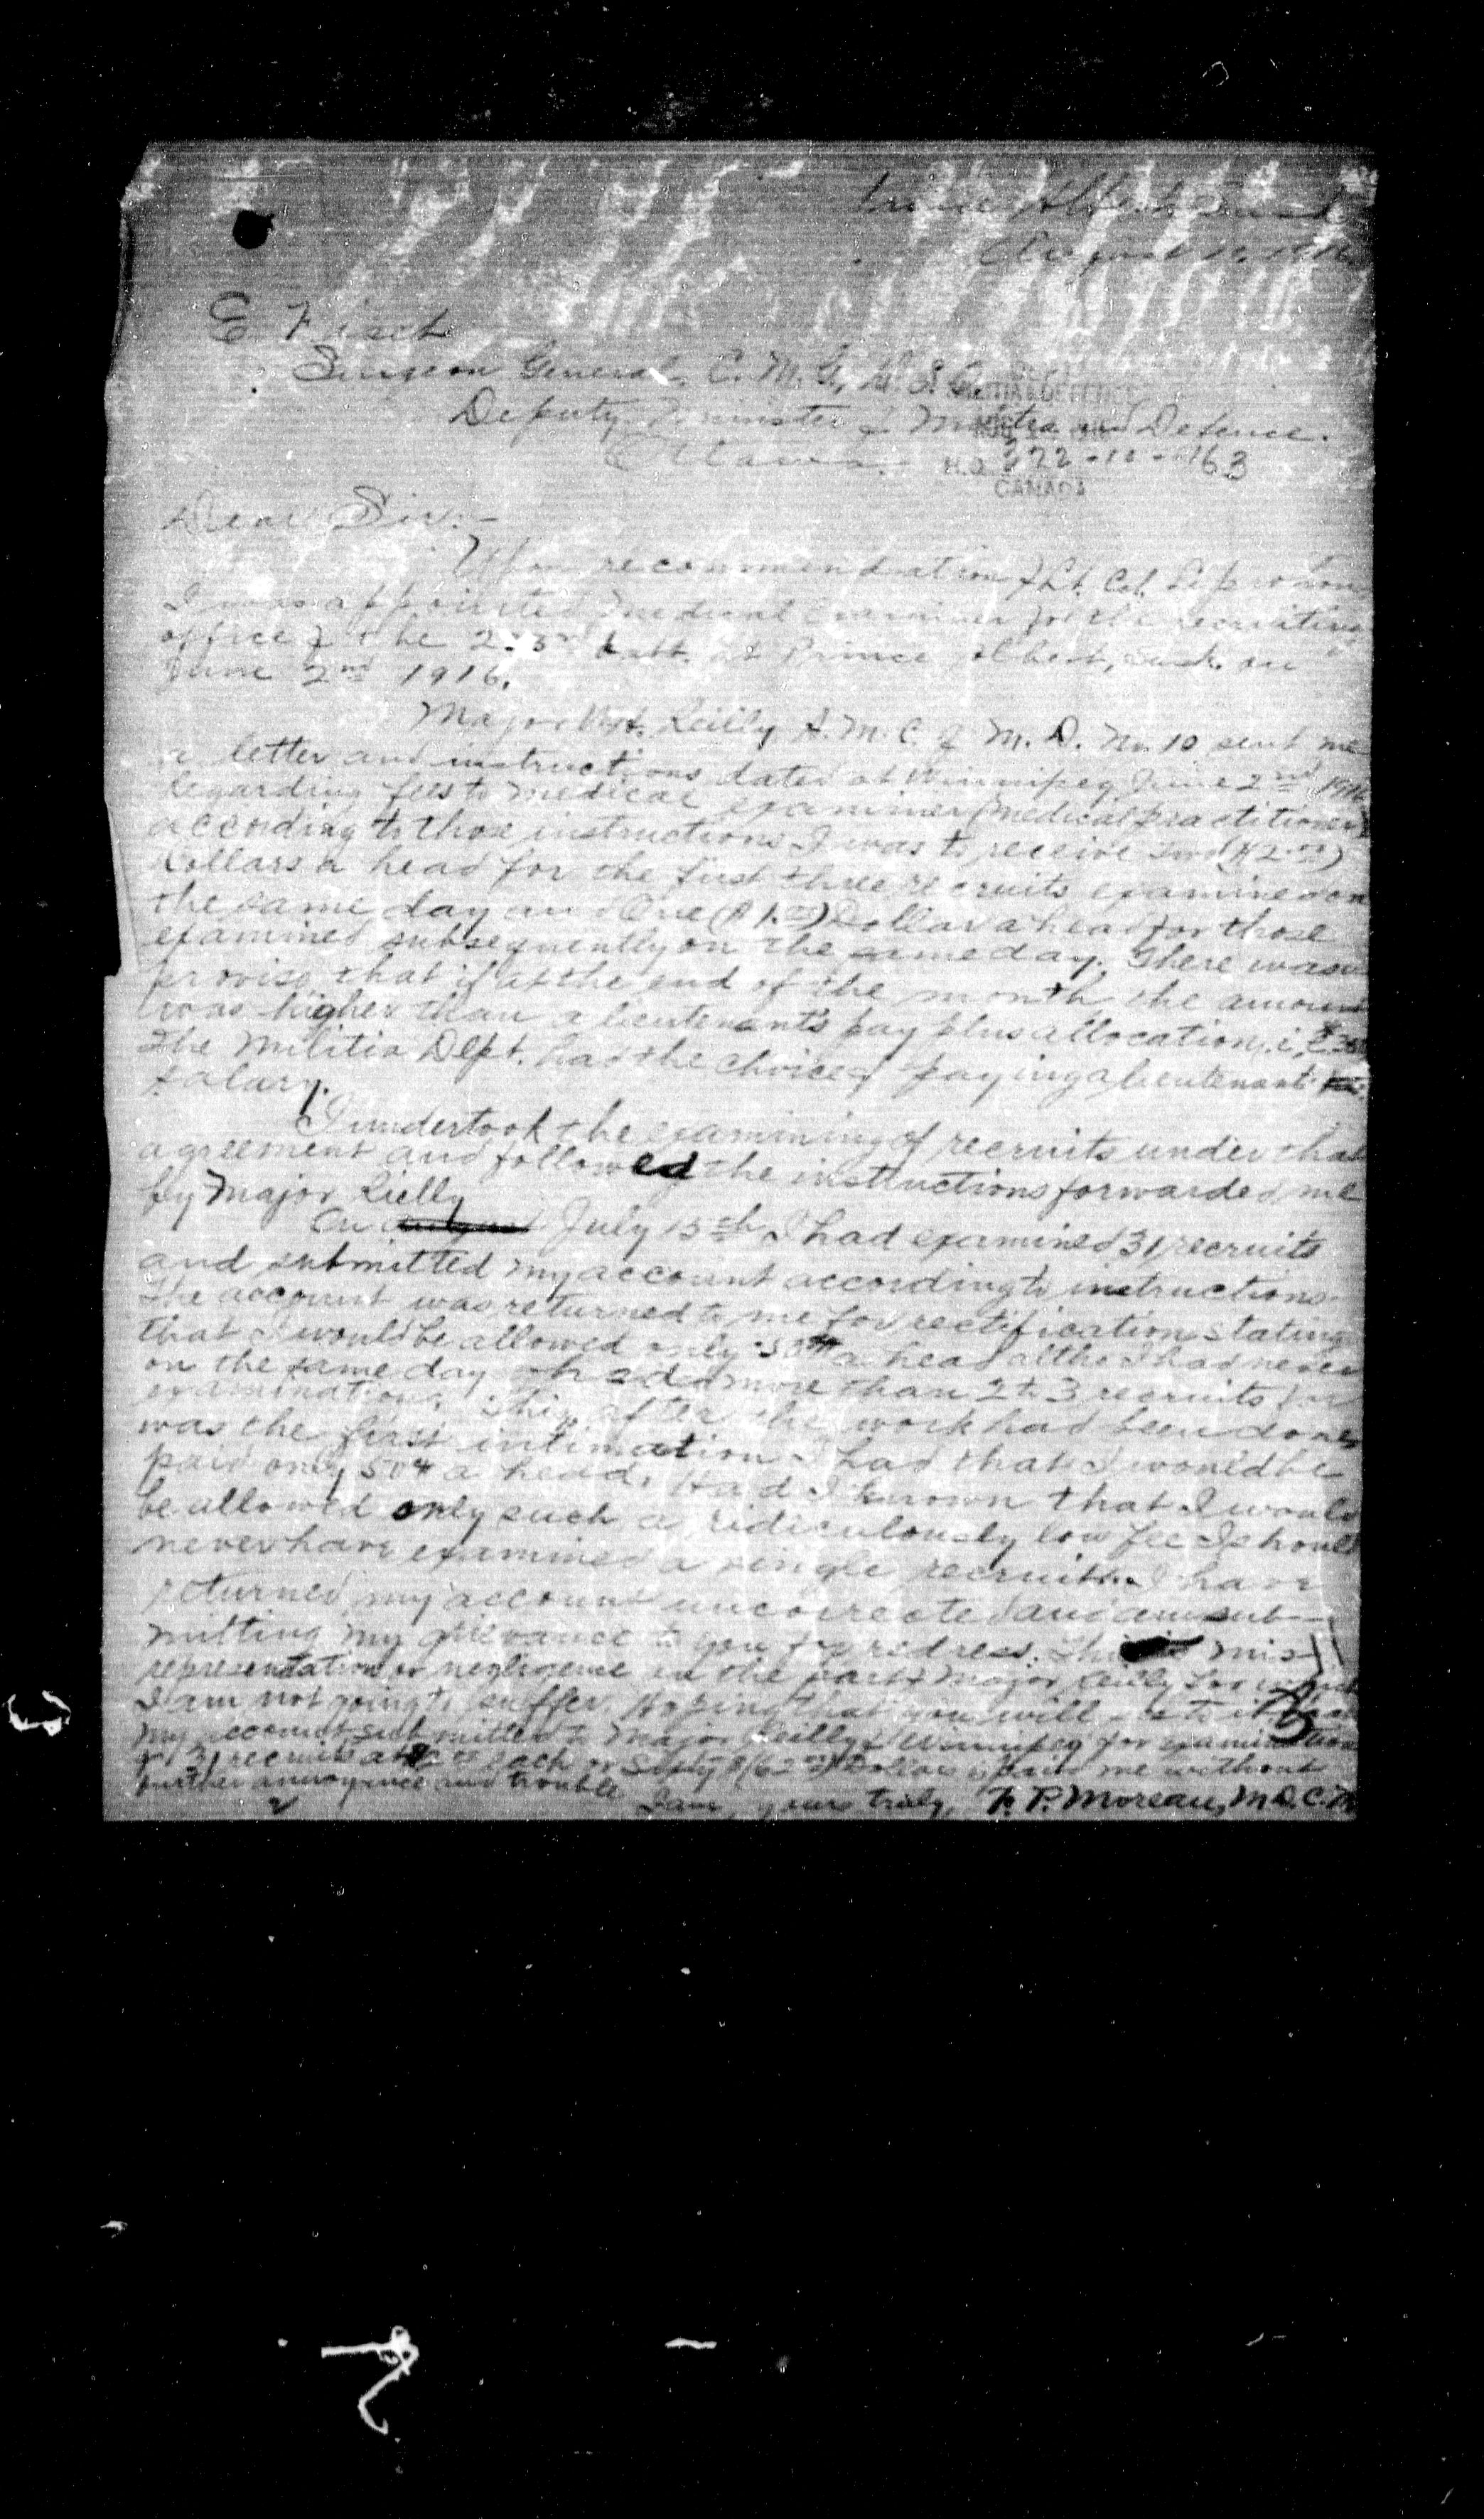 Prince Albert, Sask.
August
E. Fiset
Surgeon General, C. M. G., D. S. O.
Deputy Minister of Militia and Defence.
Ottawa.
H.Q. 322-10-163
CANADA
Dear Sir:-
Upon recommendation of Lt. Col. Leprohon
I was appointed medical examiner for the recruiting
office of the batt. at Prince Albert, Sask. on
June 2nd 1916.
Major Reilly A. M. C. of M. D. No. 10 sent me
a letter and instructions dated at Winnipeg June 2nd 1916
regarding fees to medical examiner (medical practitioner)
according to those instructions I was to receive two ($2.00)
Dollars a head for the first three recruits examined on
the same day and One ($1.00) Dollar a head for those
examined subsequently on the same day. There was a
proviso that if at the end of the month the amount
was higher than a lieutenant's pay plus allocation, i.e.
the Militia Dept. had the choice of paying a lieutenant's
salary.
I undertook the examining of recruits under that
agreement and followed the instructions forwarded me
by Major Reilly
On July 15th I had examined 31 recruits
and submitted my account according to instructions.
The account was returned to me for rectification stating
that I would be allowed only 50¢ a head altho I had never
on the same day more than 2 to 3 recruits for
examination. This, after the work had been done,
was the first intimation I had that I would be
paid only 50¢ a head. Had I known that I would
be allowed only such a ridiculously low fee I should
never have examined a single recruit. I have
returned my account uncorrected and am sub-
mitting my grievance to you for redress. This mis-
representation or negligence on the part of Major Reilly
I am not going to suffer. Hoping that you will see to it
my account submitted to Major Reilly of Winnipeg for examination
of 31 recruits at $2.00 each or Sixty ($62.00) Dollars is paid me without
further annoyance and trouble
I am, yours truly, F. P. Moreau, M.D.C.M.